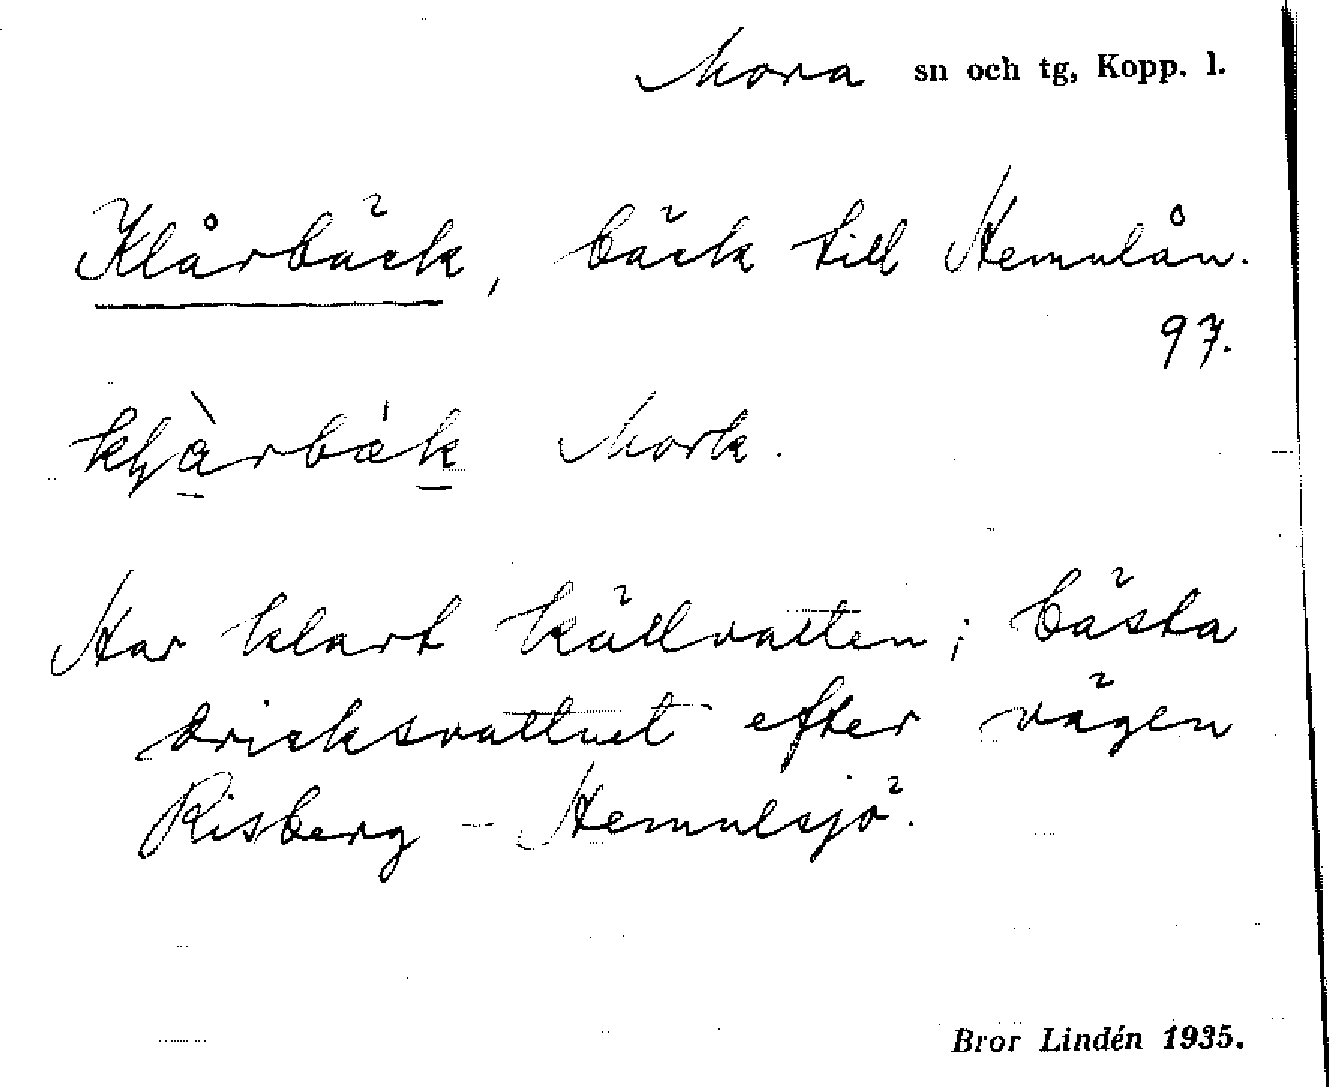 Mora sn och tg, Kopp. l.
Klårbäck, bäck till Hemulån.
97.
Mork.
Har klart källvatten; bästa
dricksvattnet efter vägen
Risberg - Hemulsjö.
Bror Lindén 1935.